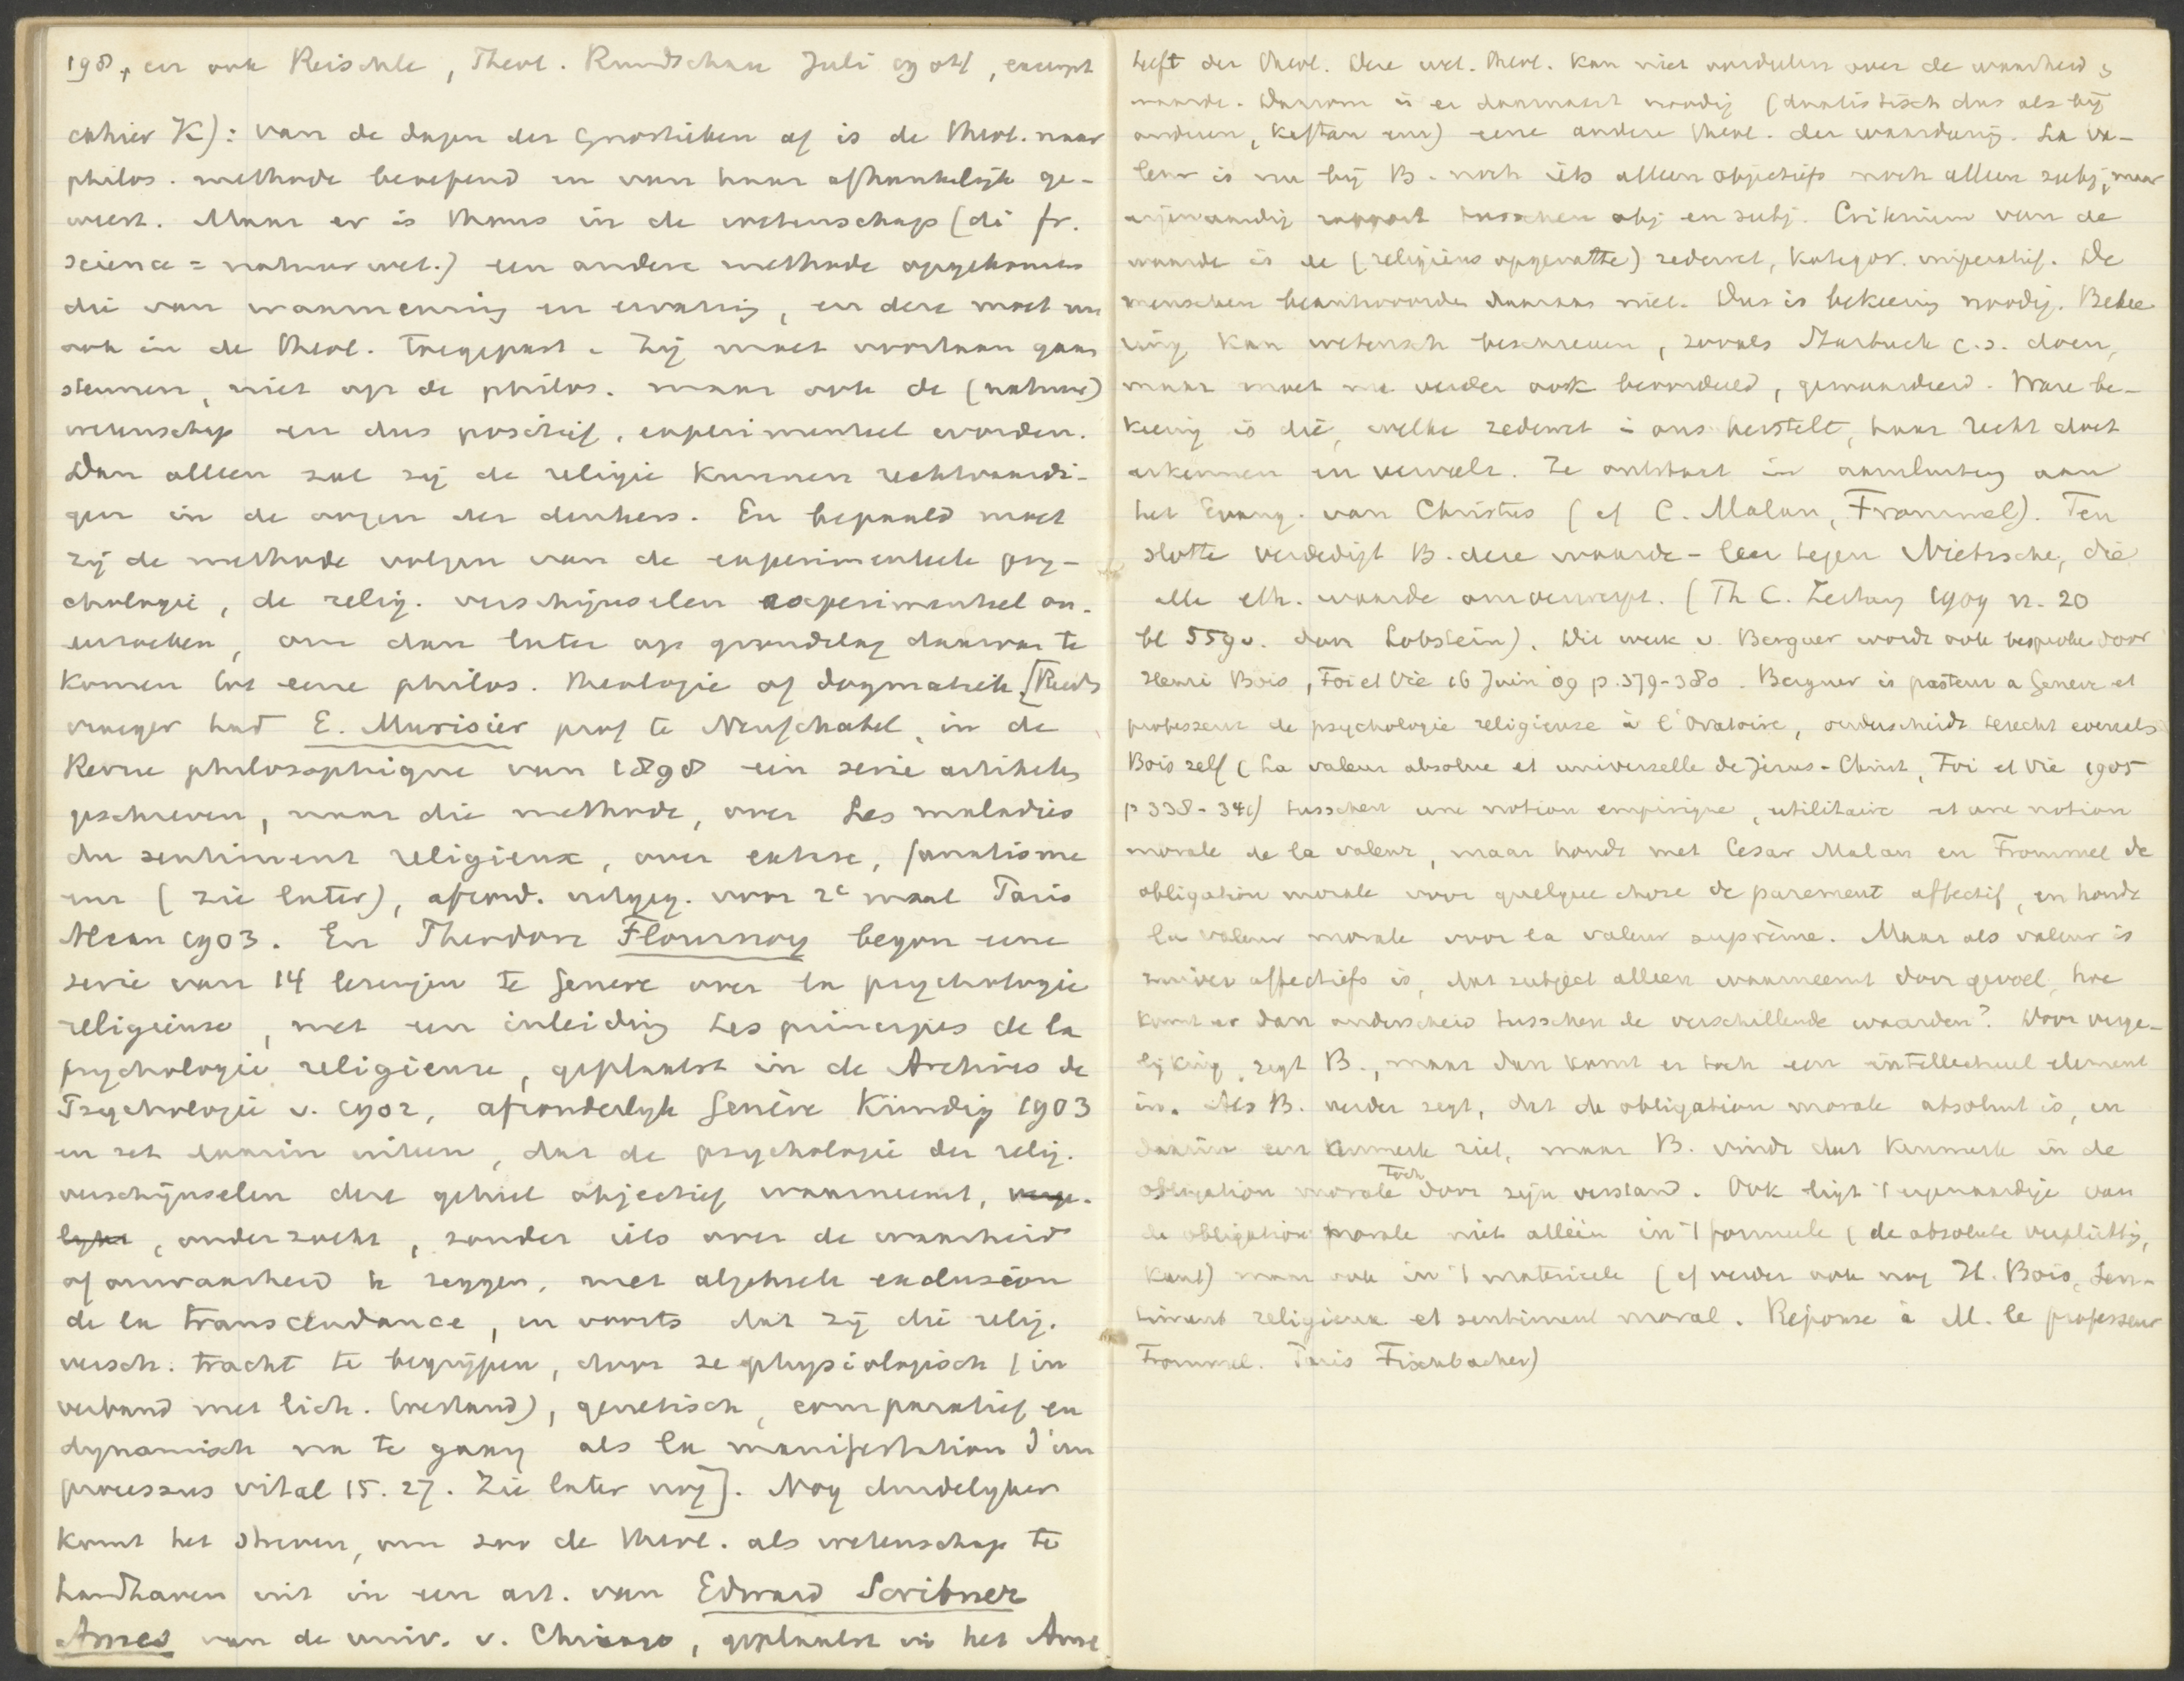 198, en ook Reischle, Theol. Rundschau Juli 1904, excerpt
cahier K): van de dagen der Gnostieken af is de theol. naar
philos. methode beoefend en van haar afhankelijk ge-
weest. Maar er is thans in de wetenschap (di fr.
science = natuurwet.) een andere methode opgekomen
die van waarneming en ervaring, en deze moet nu
ook in de theol. toegepast. Zij moet voortaan gaan
steunen, niet op de philos. maar op de (natuur)
wetenschap en dus positief, experimenteel worden.
Dan alleen zal zij de religie kunnen rechtvaardi-
gen in de oogen der denkers. En bepaald moet
zij de methode volgen van de experimenteele psy-
chologie, de relig. verschijnselen experimenteel on-
erzoeken, om dan later op grondslag daarvan te
komen tot eene philos. theologie of dogmatiek. [Reeds
vroeger had E. Murisier prof te Neufchatel, in de
Revue philosophique van 1898 een serie artikelen
geschreven, naar die methode, over Les maladies
du sentiment religieux, over extase, fanatisme
enz (zie later), afzond. uitgeg. voor 2e maal Paris
Alcan 1903. En Theodore Flournoy begon eene
serie van 14 lezingen te Geneve over la psychologie
religieuse, met een inleiding Les principes de la
psychologie religieuse, geplaatst in de Archives de
Psychologie v. 1902, afzonderlijk Genève Kündig 1903
en zet daarin uiteen, dat de psychologie der relig.
verschijnselen deze geheel objectief waarneemt, verge-
lijkt, onderzoekt, zonder iets over de waarheid
of onwaarheid te zeggen, met algeheele exclusion
de la transcendance, en voorts dat zij die relig.
versch. tracht te begrijpen, door ze physiologisch (in
verband met lich. toestand), genetisch, comparatief en
dynamisch na te gaan als la manifestation d'un
processus vital 15. 27. Zie later nog]. Nog duidelijker
komt het streven, om zoo de theol. als wetenschap te
handhaven uit in een art. van Edward Scribner
Ames van de univ. v. Chicago, geplaatst in het Ame
heeft der theol. Deze wet. theol. kan niet oordeelen over de waarheid &
waarde. Daarom is er daarnaast noodig (dualistisch dus als bij
anderen, Kaftan enz) eene andere theol. der waardering. La va-
leur is nu bij B. noch iets alleen objectiefs noch alleen subj, maar
eigenaardig rapport tusschen obj en subj. Criterium van de
waarde is de (religieus opgevatte) zedewet, kategor. imperatief. De
menschen beantwoorden daaraan niet. Dus is bekeering noodig. Bekee-
ring kan wetensch beschreven, zooals Starbuck c.s. doen,
maar moet nu verder ook beoordeeld, gewaardeerd. Ware be-
keering is die, welke zedewet in ons herstelt, haar recht doet
erkennen en verwezl. Ze ontstaat in aansluiting aan
het Evang. van Christus (cf C. Malan, Frommel). Ten
slotte verdedigt B. deze waarde-leer tegen Nietzsche, die
alle eth. waarde omverwerpt. (Th C. Zeitung 1909 n. 20
bl 559v. door Lobstein). Dit werk v. Berguer wordt ook besproken door
Henri Bois, Foi et Vie 16 Juin 09 p. 379-380. Berguer is pasteur a Geneve et
professeur de psychologie religieuse à l'Oratoire, onderscheidt terecht evenals
Bois zelf (La valeur absolue et universelle de Jésus-Christ, Foi et Vie 1905
p 338-341) tusschen une notion empirique, utilitaire et une notion
morale de la valeur, maar houdt met Cesar Malan en Frommel de
obligation morale voor quelque chose de purement affectif, en houdt
la valeur morale voor la valeur suprême. Maar als valeur is
zuiver affectiefs is, dat subject alleen waarneemt door gevoel, hoe
komt er dan onderscheid tusschen de verschillende waarden? Door verge-
lijking, zegt B., maar dan komt er toch een intellectueel element
in. Als B. verder zegt, dat de obligation morale absoluut is, en
daarin een kenmerk ziet, maar B. vindt dat kenmerk in de
obligation morale toch door zijn verstand. Ook ligt 't eigenaardige van
de obligation morale niet alléén in 't formeele (de absolute verplichting,
Kant) maar ook in 't materieele (cf verder ook nog H. Bois, Sen-
timent religieux et sentiment moral. Réponse à M. le professeur
Frommel. Paris Fischbacher)